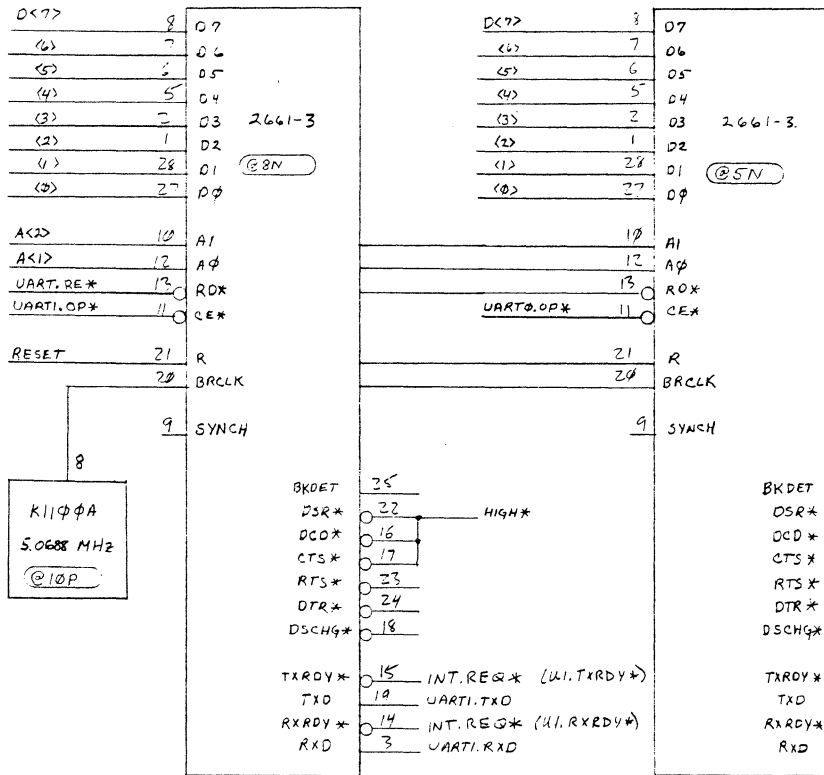 D<7> 8 D7
<6> 7 D6
<5> 6 D5
<4> 5 D4
<3> 2 D3 2661-3
<2> 1 D2
<1> 28 D1 @8N
<0> 27 DØ
A<2> 10 A1
A<1> 12 AØ
UART.RE* 13 RD*
UART1.OP* 11 CE*
RESET 21 R
20 BRCLK
9 SYNCH
8
K11ØØA
5.0688 MHz
@1ØP
BKDET 25
DSR* 22 HIGH*
DCD* 16
CTS* 17
RTS* 23
DTR* 24
DSCHG* 18
TXRDY* 15 INT.REQ* (U1.TXRDY*)
TXD 19 UART1.TXD
RXRDY* 14 INT.REQ* (U1.RXRDY*)
RXD 3 UART1.RXD
D<7> 8 D7
<6> 7 D6
<5> 6 D5
<4> 5 D4
<3> 2 D3 2661-3.
<2> 1 D2
<1> 28 D1 @5N
<Ø> 27 DØ
1Ø A1
12 AØ
13 RD*
UARTØ.OP* 11 CE*
21 R
2Ø BRCLK
9 SYNCH
BKDET
DSR*
DCD*
CTS*
RTS*
DTR*
DSCHG*
TXRDY*
TXD
RXRDY*
RXD